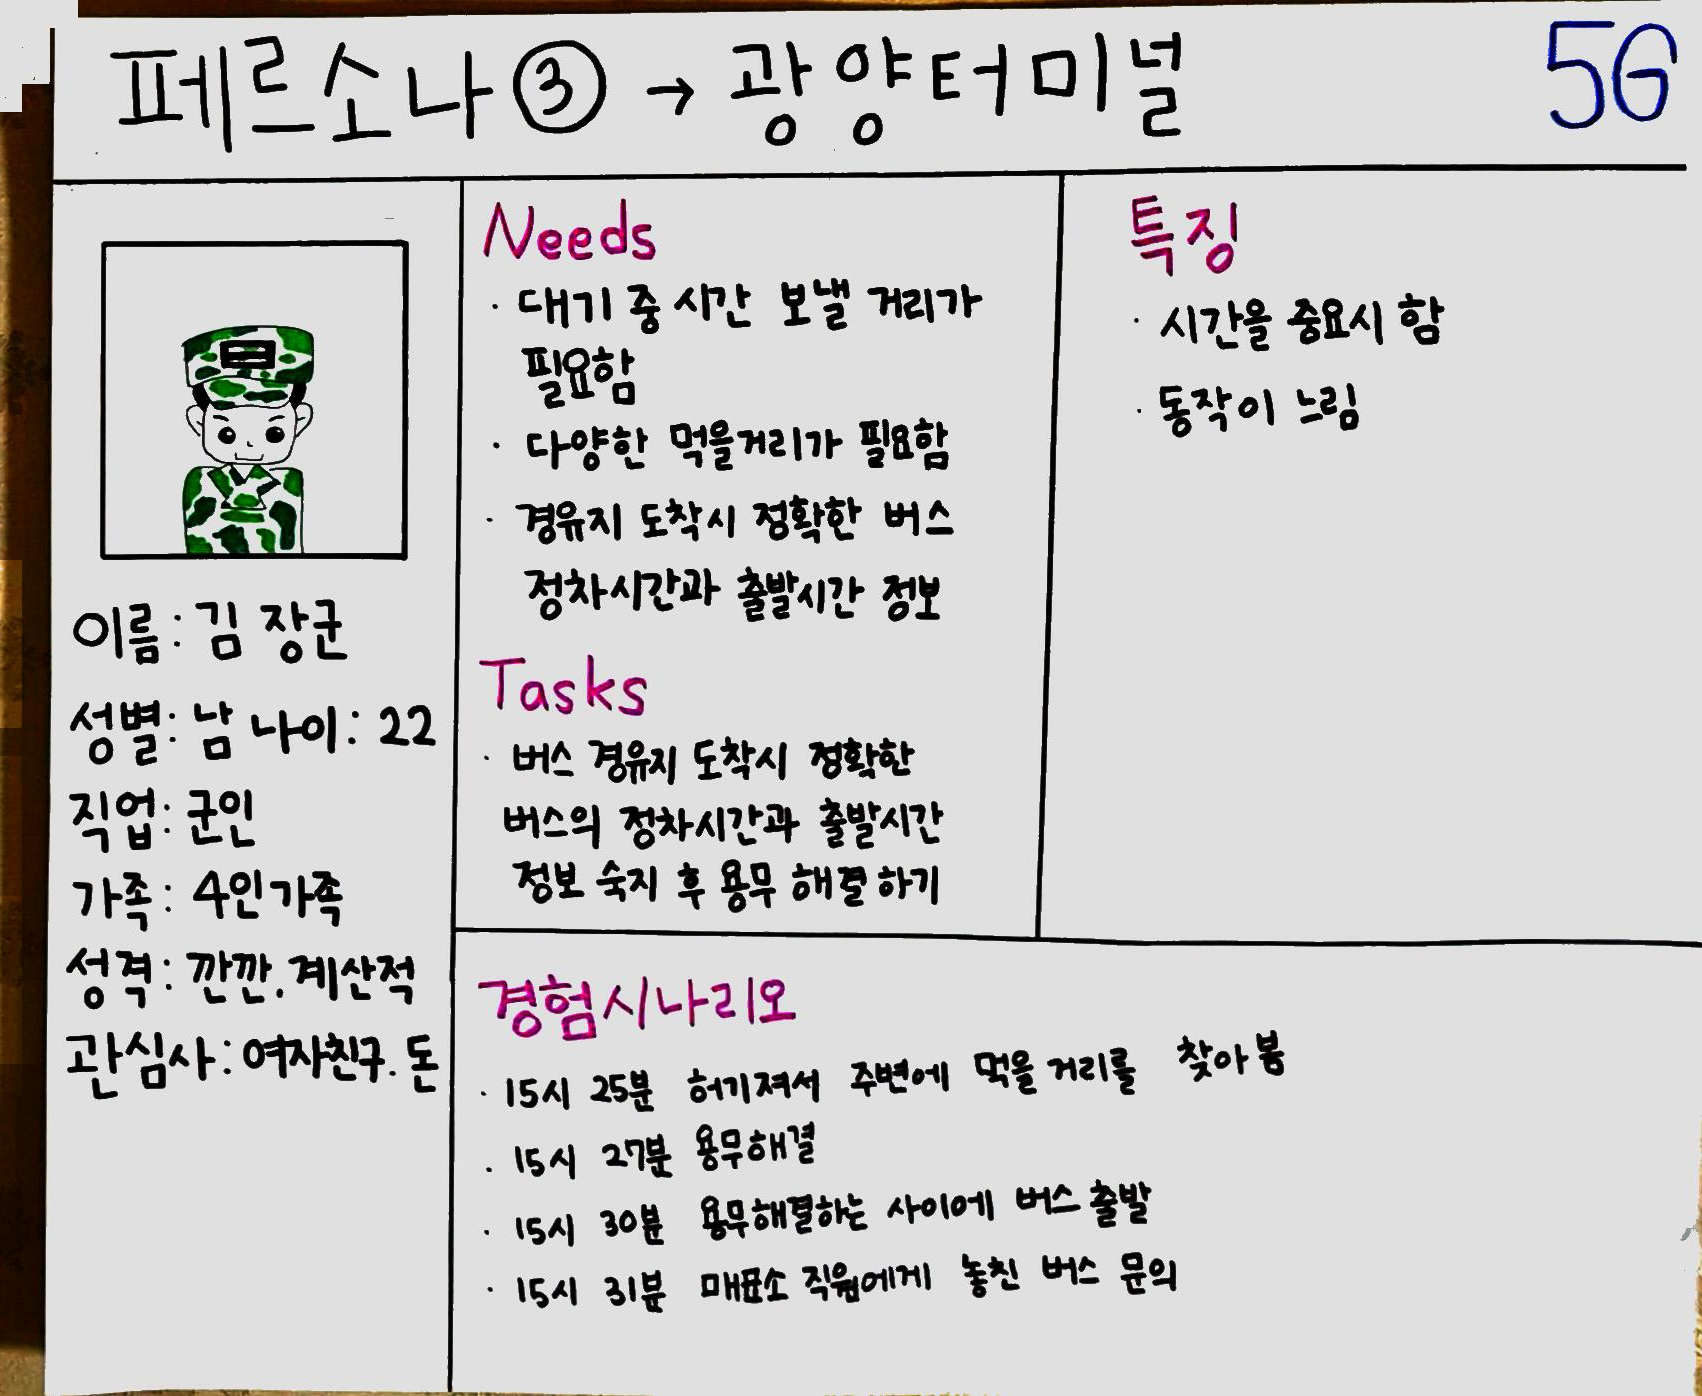 페르소나 ③ → 광양터미널
5G
이름: 김 장군
성별: 남 나이: 22
직업: 군인
가족: 4인가족
성격: 깐깐, 계산적
관심사: 여자친구. 돈
Needs
· 대기 중 시간 보낼 거리가
필요함
· 다양한 먹을거리가 필요함
· 경유지 도착시 정확한 버스
정차시간과 출발시간 정보
Tasks
· 버스 경유지 도착시 정확한
버스의 정차시간과 출발시간
정보 숙지 후 용무 해결하기
특징
· 시간을 중요시 함
· 동작이 느림
경험시나리오
· 15시 25분 허기져서 주변에 먹을 거리를 찾아봄
· 15시 27분 용무해결
· 15시 30분 용무해결하는 사이에 버스 출발
· 15시 31분 매표소 직원에게 놓친 버스 문의